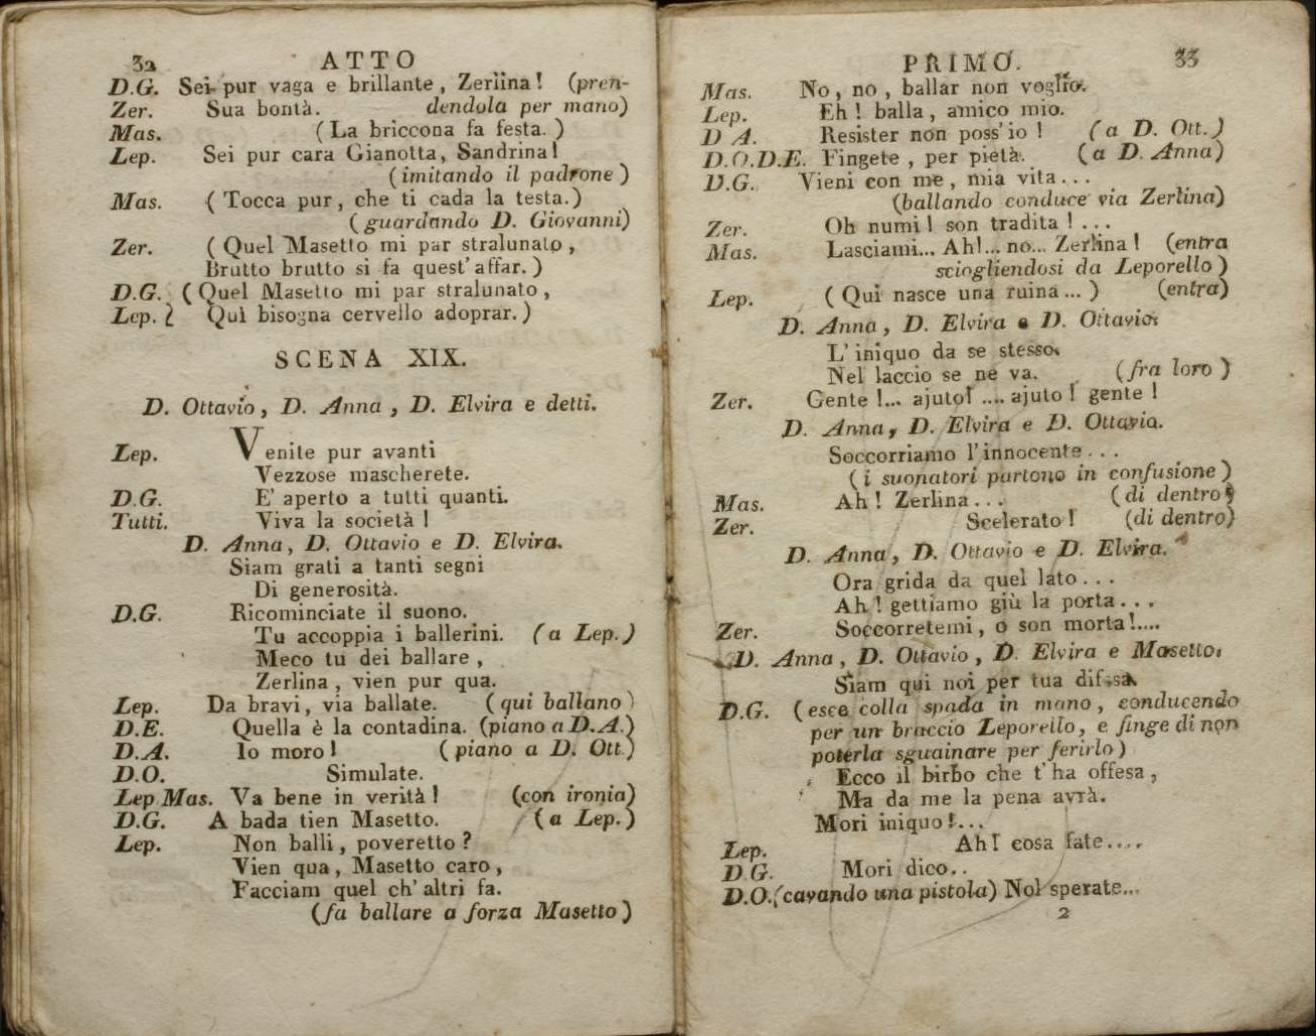 32 ATTO
D.G. Sei pur vaga e brillante, Zerlina! (pren-
Zer. Sua bontà. dendola per mano)
Mas. (La briccona fa festa.)
Lep. Sei pur cara Gianotta, Sandrina!
(imitando il padrone)
Mas. (Tocca pur, che ti cada la testa.)
(guardando D. Giovanni)
Zer. (Quel Masetto mi par stralunato,
Brutto brutto si fa quest' affar.)
D.G. (Quel Masetto mi par stralunato,
Lep. Quì bisogna cervello adoprar.)
SCENA XIX.
D. Ottavio, D. Anna, D. Elvira e detti.
Lep. Venite pur avanti
Vezzose mascherete.
D.G. E' aperto a tutti quanti.
Tutti. Viva la società!
D. Anna, D. Ottavio e D. Elvira.
Siam grati a tanti segni
Di generosità.
D.G. Ricominciate il suono.
Tu accoppia i ballerini. (a Lep.)
Meco tu dei ballare,
Zerlina, vien pur qua.
Lep. Da bravi, via ballate. (qui ballano)
D.E. Quella è la contadina. (piano a D.A.)
D.A. Io moro! (piano a D. Ott.)
D.O. Simulate.
Lep Mas. Va bene in verità! (con ironia)
D.G. A bada tien Masetto. (a Lep.)
Lep. Non balli, poveretto?
Vien qua, Masetto caro,
Facciam quel ch' altri fa.
(fa ballare a forza Masetto)
PRIMO. 33
Mas. No, no, ballar non voglio.
Lep. Eh! balla, amico mio.
D A. Resister non poss' io! (a D. Ott.)
D.O.D.E. Fingete, per pietà. (a D. Anna)
D.G. Vieni con me, mia vita...
(ballando conduce via Zerlina)
Zer. Oh numi! son tradita!...
Mas. Lasciami... Ah!... no... Zerlina! (entra
sciogliendosi da Leporello)
Lep. (Qui nasce una ruina...) (entra)
D. Anna, D. Elvira e D. Ottavio.
L' iniquo da se stesso
Nel laccio se ne va. (fra loro)
Zer. Gente!... ajuto! .... ajuto! gente!
D. Anna, D. Elvira e D. Ottavio.
Soccorriamo l' innocente...
(i suonatori partono in confusione)
Mas. Ah! Zerlina... (di dentro)
Zer. Scelerato! (di dentro)
D. Anna, D. Ottavio e D. Elvira.
Ora grida da quel lato...
Ah! gettiamo giù la porta...
Zer. Soccorretemi, o son morta!....
D. Anna, D. Ottavio, D. Elvira e Masetto.
Siam qui noi per tua difesa.
D.G. (esce colla spada in mano, conducendo
per un braccio Leporello, e finge di non
poterla sguainare per ferirlo)
Ecco il birbo che t' ha offesa,
Ma da me la pena avrà.
Mori iniquo!...
Lep. Ah! cosa fate....
D G. Mori dico..
D.O. (cavando una pistola) Nol sperate...
2